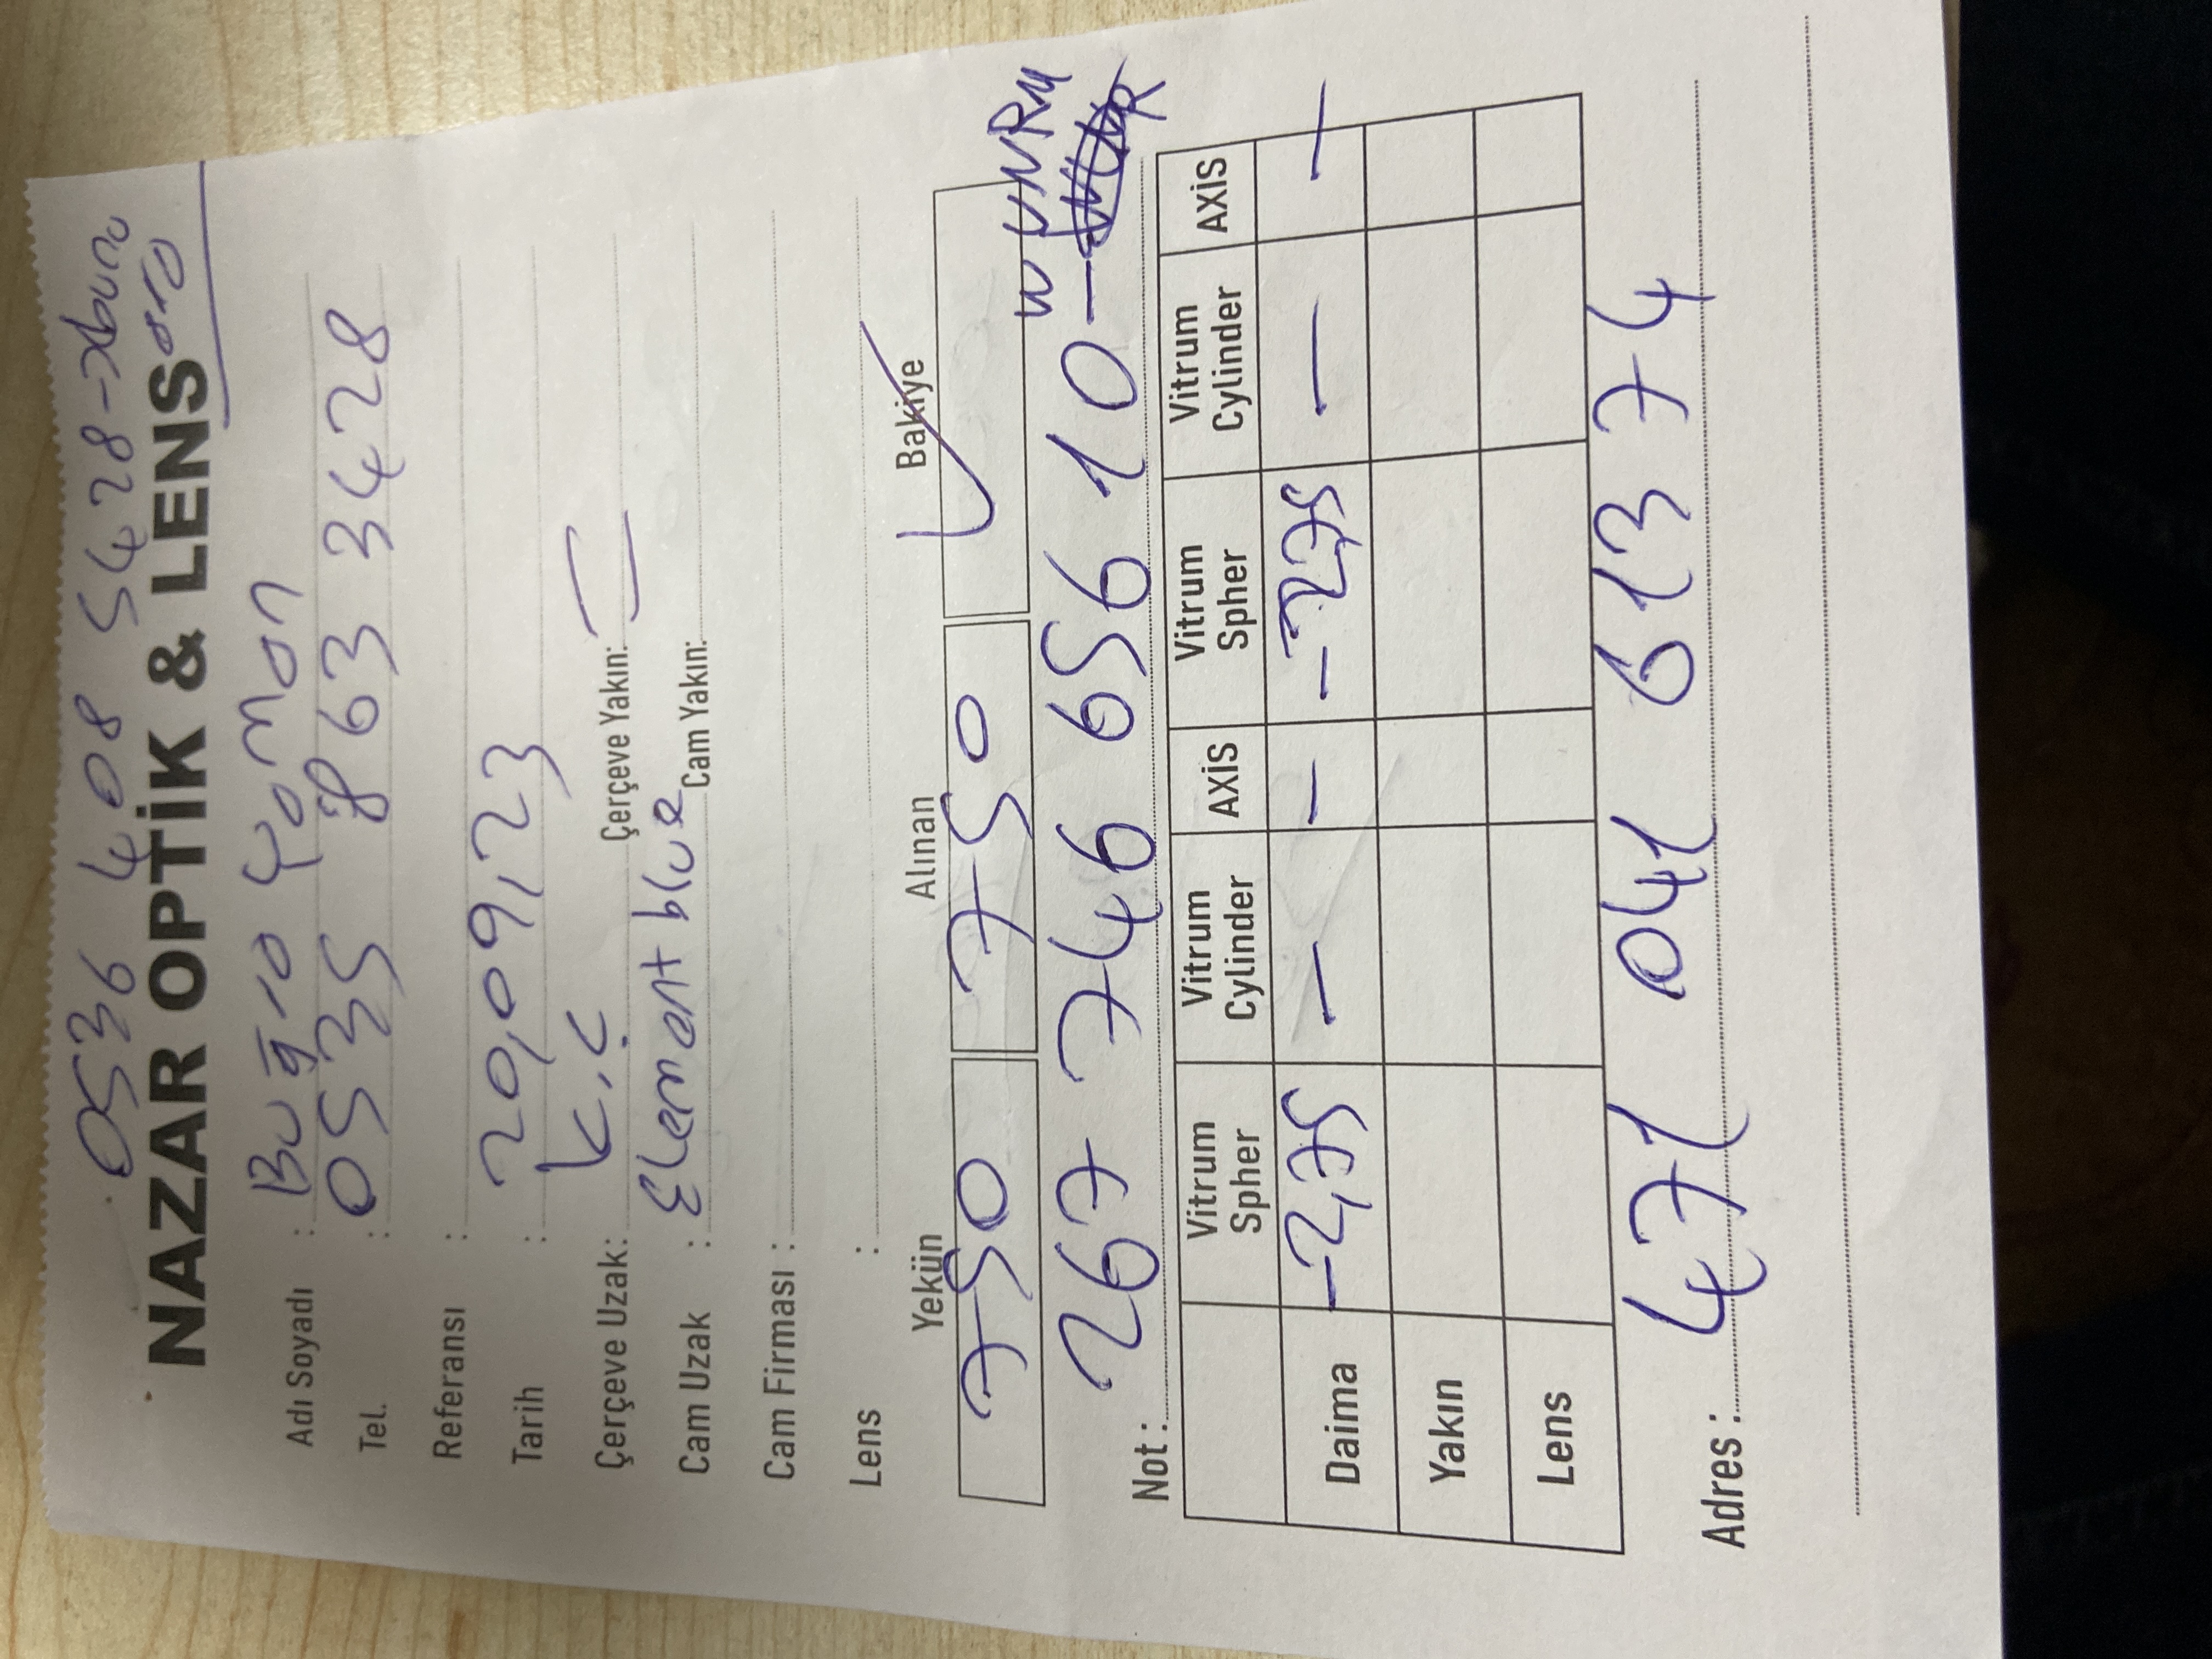 0536 408 5428 - bunu
ara
NAZAR OPTİK & LENS
Adı Soyadı : Buğra Yaman
Tel. : 0535 863 3428
Referansı :
Tarih : 20,09,23
Çerçeve Uzak: K.Ç Çerçeve Yakın:
Cam Uzak : Element blue Cam Yakın:
Cam Firması :
Lens :
Yekün Alınan Bakiye
750 750 ✓
Not : 267 746 656 10 - WUNRU
Vitrum Spher Vitrum Cylinder AXİS Vitrum Spher Vitrum Cylinder AXİS
Daima -2,75 — — -2,75 — —
Yakın
Lens
Adres : 471 041 613 74